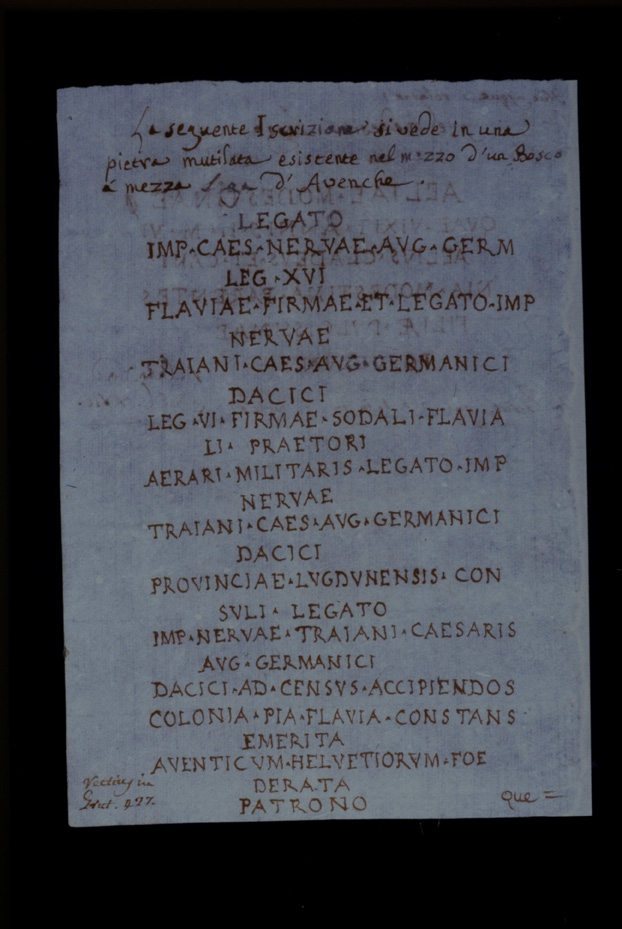 La seguente Iscrizione si vede in una
pietra mutilata esistente nel mezzo d'un Bosco
á mezza Lega d'Avenche.
LEGATO
IMP·CAES·NERVAE·AVG·GERM
LEG·XVI
FLAVIAE·FIRMAE·ET·LEGATO·IMP
NERVAE
TRAIANI·CAES·AVG·GERMANICI
DACICI
LEG·VI·FIRMAE·SODALI·FLAVIA
LI· PRAETORI
AERARI·MILITARIS·LEGATO·IMP
NERVAE
TRAIANI·CAES·AVG·GERMANICI
DACICI
PROVINCIAE·LVGDVNENSIS·CON
SVLI· LEGATO
IMP·NERVAE·TRAIANI·CAESARIS
AVG·GERMANICI
DACICI·AD·CENSVS·ACCIPIENDOS
COLONIA·PIA·FLAVIA·CONSTANS
EMERITA
AVENTICVM·HELVETIORVM·FOE
DERATA
PATRONO
in
Grut. 427.
que=